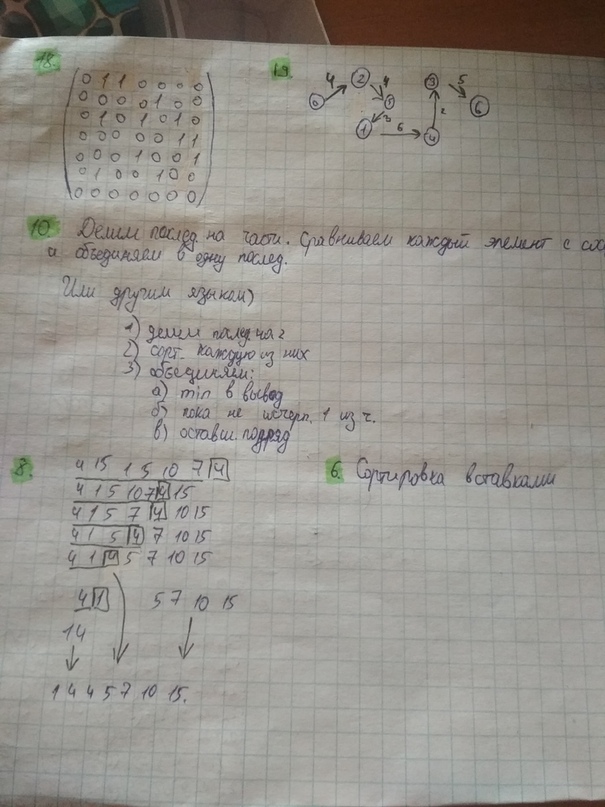 18.
0 1 1 0 0 0 0
0 0 0 0 1 0 0
0 1 0 1 0 1 0
0 0 0 0 0 1 1
0 0 0 1 0 0 1
0 1 0 0 1 0 0
0 0 0 0 0 0 0
19.
4 2 4 3 5
0 5 6
3 2
1 6 4
10. Делим послед. на части. Сравниваем каждый элемент с
и объединяем в одну послед.
Или другим языком)
1) делим послед. на 2
2) сорт. каждую из них
3) объединяем:
а) min в вывод
б) пока не исчерп. 1 из ч.
в) оставш. подряд
8.
4 15 1 5 10 7 4
4 1 5 10 7 4 15
4 1 5 7 4 10 15
4 1 5 4 7 10 15
4 1 4 5 7 10 15
4 1 5 7 10 15
1 4
1 4 4 5 7 10 15.
6. Сортировка вставками